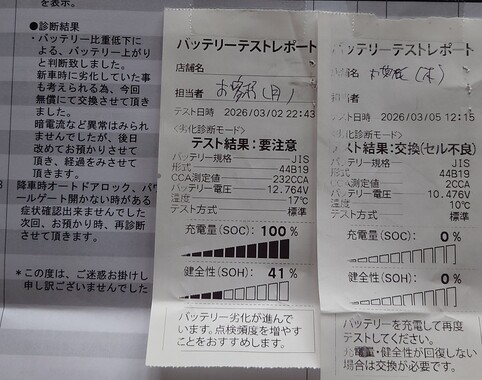 を表示。
●診断結果
・バッテリー比重低下に
よる、バッテリー上がり
と判断致しました。
新車時に劣化していた事
も考えられる為、今回
無償にて交換させて頂き
ました。
暗電流など異常はみられ
ませんでしたが、後日
改めてお預かりさせて
頂き、経過をみさせて
頂きます。
降車時オートドアロック、パワ
ールゲート開かない時がある
症状確認出来ませんでした
次回、お預かり時、再診断
させて頂きます。
*この度は、ご迷惑お掛けし
申し訳ございませんでした
バッテリーテストレポート
店舗名
担当者 お客様(月)
テスト日時 2026/03/02 22:43
<劣化診断モード>
テスト結果:要注意
バッテリー規格 JIS
形式 44B19
CCA測定値 232CCA
バッテリー電圧 12.764V
温度 17℃
テスト方式 標準
充電量(SOC): 100 %
健全性(SOH): 41 %
バッテリー劣化が進んで
います。点検頻度を増やす
ことをおすすめします。
バッテリーテストレポート
店舗名 (木)
担当者
テスト日時 2026/03/05 12:15
<劣化診断モード>
スト結果:交換(セル不良)
バッテリー規格 JIS
形式 44B19
CCA測定値 2CCA
バッテリー電圧 10.476V
温度 10℃
テスト方式 標準
充電量(SOC): 0 %
健全性(SOH): 0 %
バッテリーを充電して再度
テストしてください。
充電量・健全性が回復しない
場合は交換が必要です。